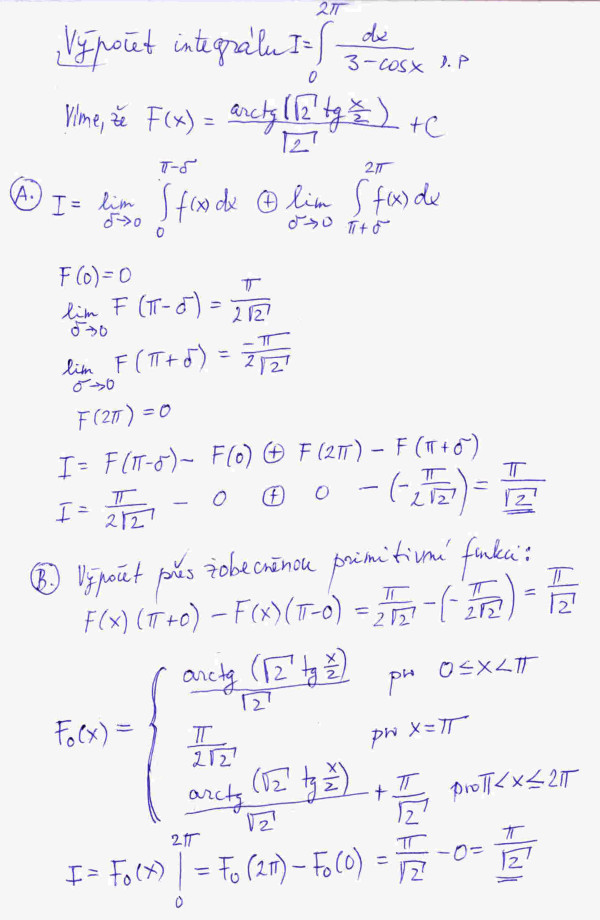 Výpočet integrálu I = ∫_0^{2π} dx / (3 − cosx) D.P
Víme, že F(x) = arctg(√2 tg x/2) / √2 + C
A. I = lim_{δ→0} ∫_0^{π−δ} f(x) dx ⊕ lim_{δ→0} ∫_{π+δ}^{2π} f(x) dx
F(0) = 0
lim_{δ→0} F(π−δ) = π / 2√2
lim_{δ→0} F(π+δ) = −π / 2√2
F(2π) = 0
I = F(π−δ) − F(0) ⊕ F(2π) − F(π+δ)
I = π / 2√2 − 0 ⊕ 0 − (−π / 2√2) = π / √2
B. Výpočet přes zobecněnou primitivní funkci:
F(x)(π+0) − F(x)(π−0) = π / 2√2 − (−π / 2√2) = π / √2
F₀(x) = {
arctg(√2 tg x/2) / √2 pro 0 ≤ x < π
π / 2√2 pro x = π
arctg(√2 tg x/2) / √2 + π / √2 pro π < x ≤ 2π
I = F₀(x) |_0^{2π} = F₀(2π) − F₀(0) = π / √2 − 0 = π / √2